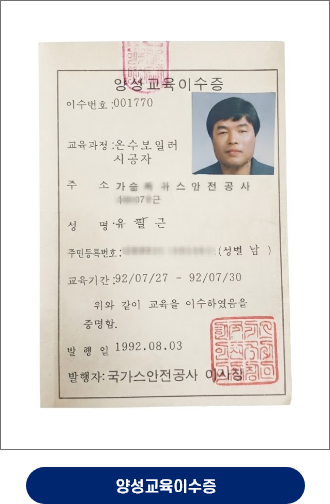 양성교육이수증
이수번호 :001770
교육과정 :온수보일러
시공자
주 소 가술 스안전공사
근
성 명 :유 필 근
주민등록번호: (성별 남 )
교육기간 :92/07/27 - 92/07/30
위와 같이 교육을 이수하였음을
증명함.
발 행 일 1992.08.03
발행자: 국가스안전공사 이사장
양성교육이수증